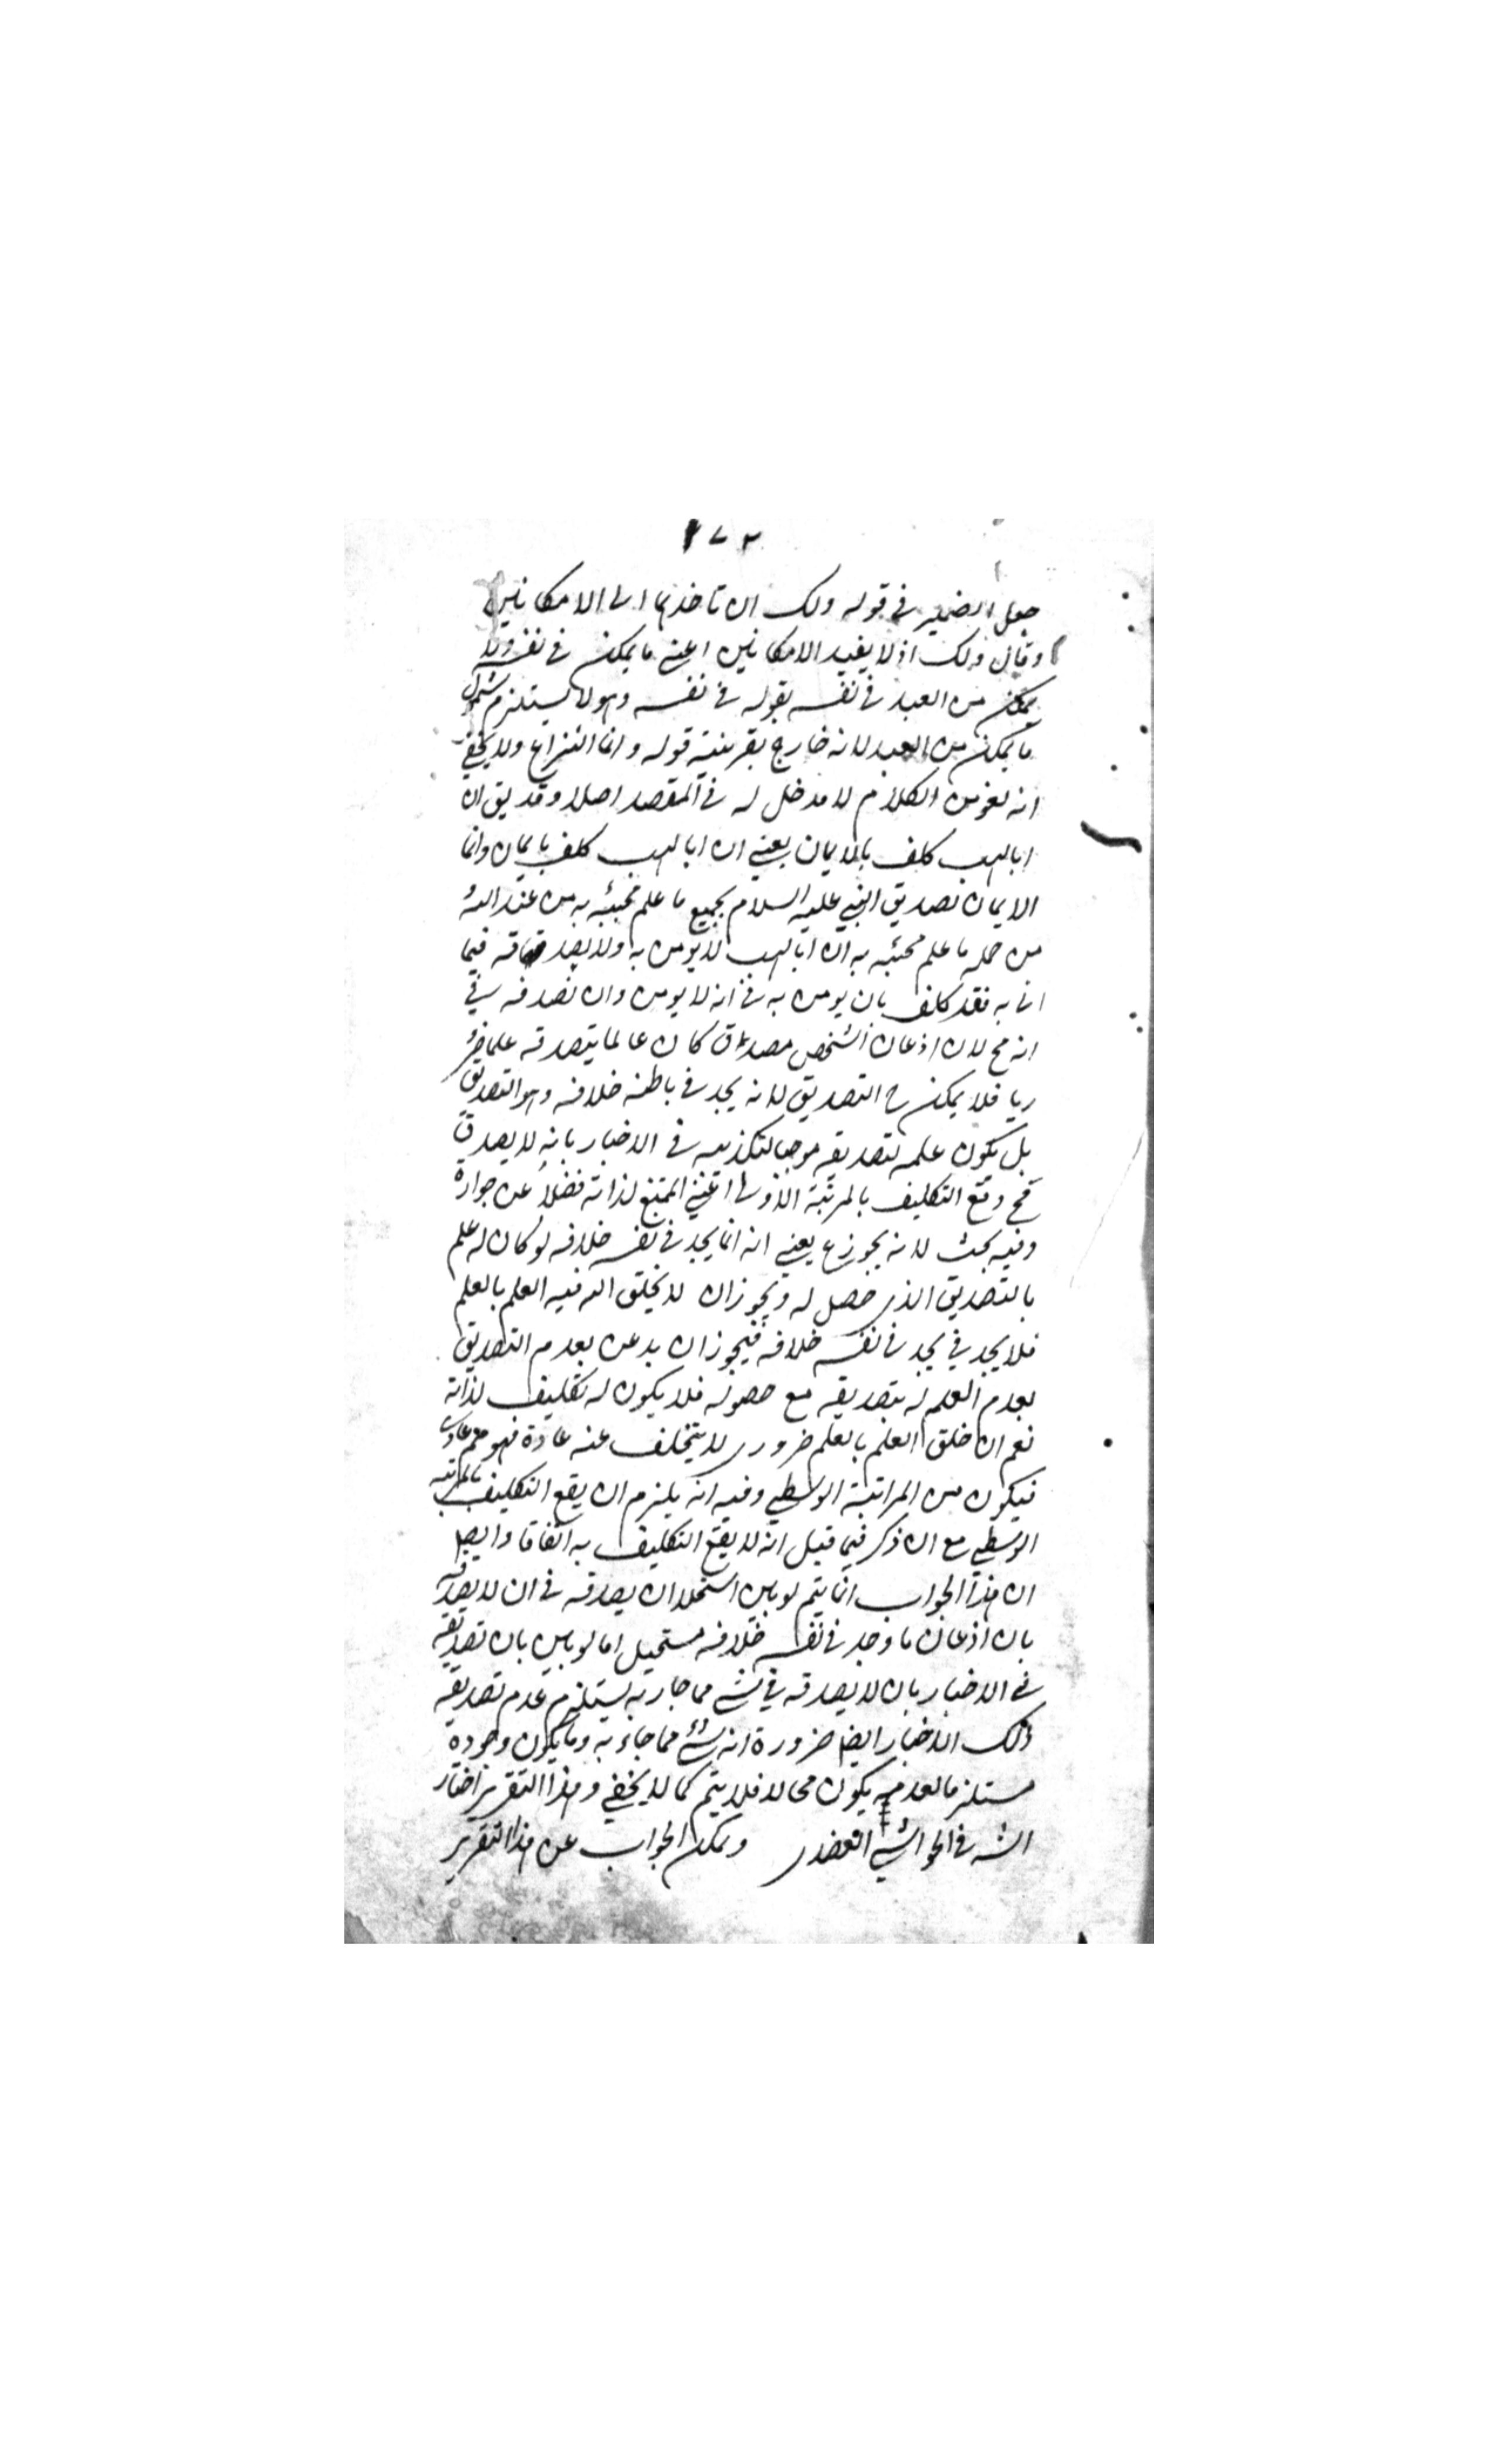 ١٧٢
جعل الضمير في قوله ولك ان تاخذها الى الامكانين
وقال ذلك اذ لا يفيد الامكانين اعني ما يمكن في نفسه ولا
يمكن من العبد في نفسه بقوله في نفسه وهو لا يستلزم شمول
ما يمكن من العبد لانه خارج بقرينة قوله وانما النزاع ولا يخفى
انه لغو من الكلام لا مدخل له في المقصد اصلا وقد يق ان
ابا لهب كلف بالايمان يعني ان ابا لهب كلف بايمان وانما
الايمان تصديق النبي عليه السلام بجميع ما علم مجيئه به من عند الله و
من جمله ما علم مجيئه به ان ابا لهب لا يومن به ولا يصدقه فيما
اتى به فقد كلف بان يومن به في انه لا يومن وان تصدقه في
انه مح لان اذعان الشخص كان عالما بتصدقه علما ضرو
ريا فلا يمكن ح التصديق لانه يجد في باطنه خلافه وهو التصديق
بل يكون علمه بتصديقه موجبا لتكذيبه في الاخبار بانه لا يصدق
فح وقع التكليف بالمرتبة الاولى اعني الممتنع لذاته فضلا عن جوازه
وفيه بحث لانه يجوز ع يعني انه انما يجد في نفسه خلافه لو كان له علم
بالتصديق الذي حصل له ويجوز ان لا يخلق الله فيه العلم بالعلم
فلا يجد في يجد في نفسه خلافه فيجوز ان يذعن بعدم التصديق
بعدم العلم له بتصديقه مع حصوله فلا يكون له تكليف لذاته
نعم ان خلق العلم بالعلم ضروري لا يتخلف عنه عادة فهو عادي
فيكون من المراتبة الوسطي وفيه انه يلزم ان يقع التكليف بالمرتبه
الوسطي مع ان ذكر فيما قبل انه لا يقع التكليف به اتفاقا وايضا
ان هذا الجواب انما يتم لو بين ان يصدقه في ان لا يصدقه
بان اذعان ما وجد في نفسه خلافه مستحيل اما لو بين بان تصديقه
في الاخبار بان لا يصدقه في شي مما جاء به يستلزم عدم تصديقه
ذلك الاخبار ايضا ضرورة انه شيء مما جاء به وما يكون وجوده
مستلزما لعدمه يكون محالا فلا يتم كما لا يخفي وهذا التقرير اختار
الشه في الحواشي العضدي ويمكن الجواب عن هذا التقرير